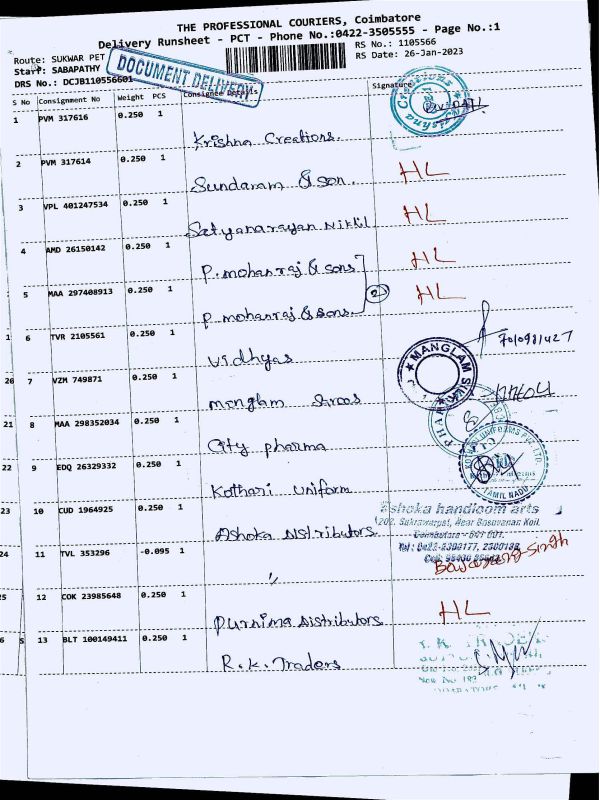 THE PROFESSIONAL COURIERS, Coimbatore
Delivery Runsheet - PCT - Phone No.:0422-3505555 - Page No.:1
Route: SUKWAR PET
RS No.: 1105566
Staff: SABAPATHY
RS Date: 26-Jan-2023
DRS No.: DCJB110556601
DOCUMENT DELIVERY
S No Consignment No Weight PCS Consignee Details Signature
1 PVM 317616 0.250 1
Krishna Creations.
2 PVM 317614 0.250 1
Sundaram & son. HL
3 VPL 401247534 0.250 1
Satyanarayan Nikhil HL
4 AMD 26150142 0.250 1
P. mohanraj & sons HL
5 MAA 297408913 0.250 1
P mohanraj & sons. 2 HL
1 6 TVR 2105561 0.250 1
Vidhyas 701981427
20 7 VZM 749871 0.250 1
MANGLAM SILK
manglam
21 8 MAA 298352034 0.250 1
City pharma
22 9 EDQ 26329332 0.250 1
TAMIL NADU
Kothari uniform
23 10 CUD 1964925 0.250 1
Ashoka handloom arts
202, Sukrawarpet, Near Basuvanan Koil,
Coimbatore - 641 001.
Ashoka Distributors
24 11 TVL 353296 -0.095 1
"
25 12 COK 23985648 0.250 1
Purnima Distributors HL
6 S 13 BLT 100149411 0.250 1
R.K. Traders